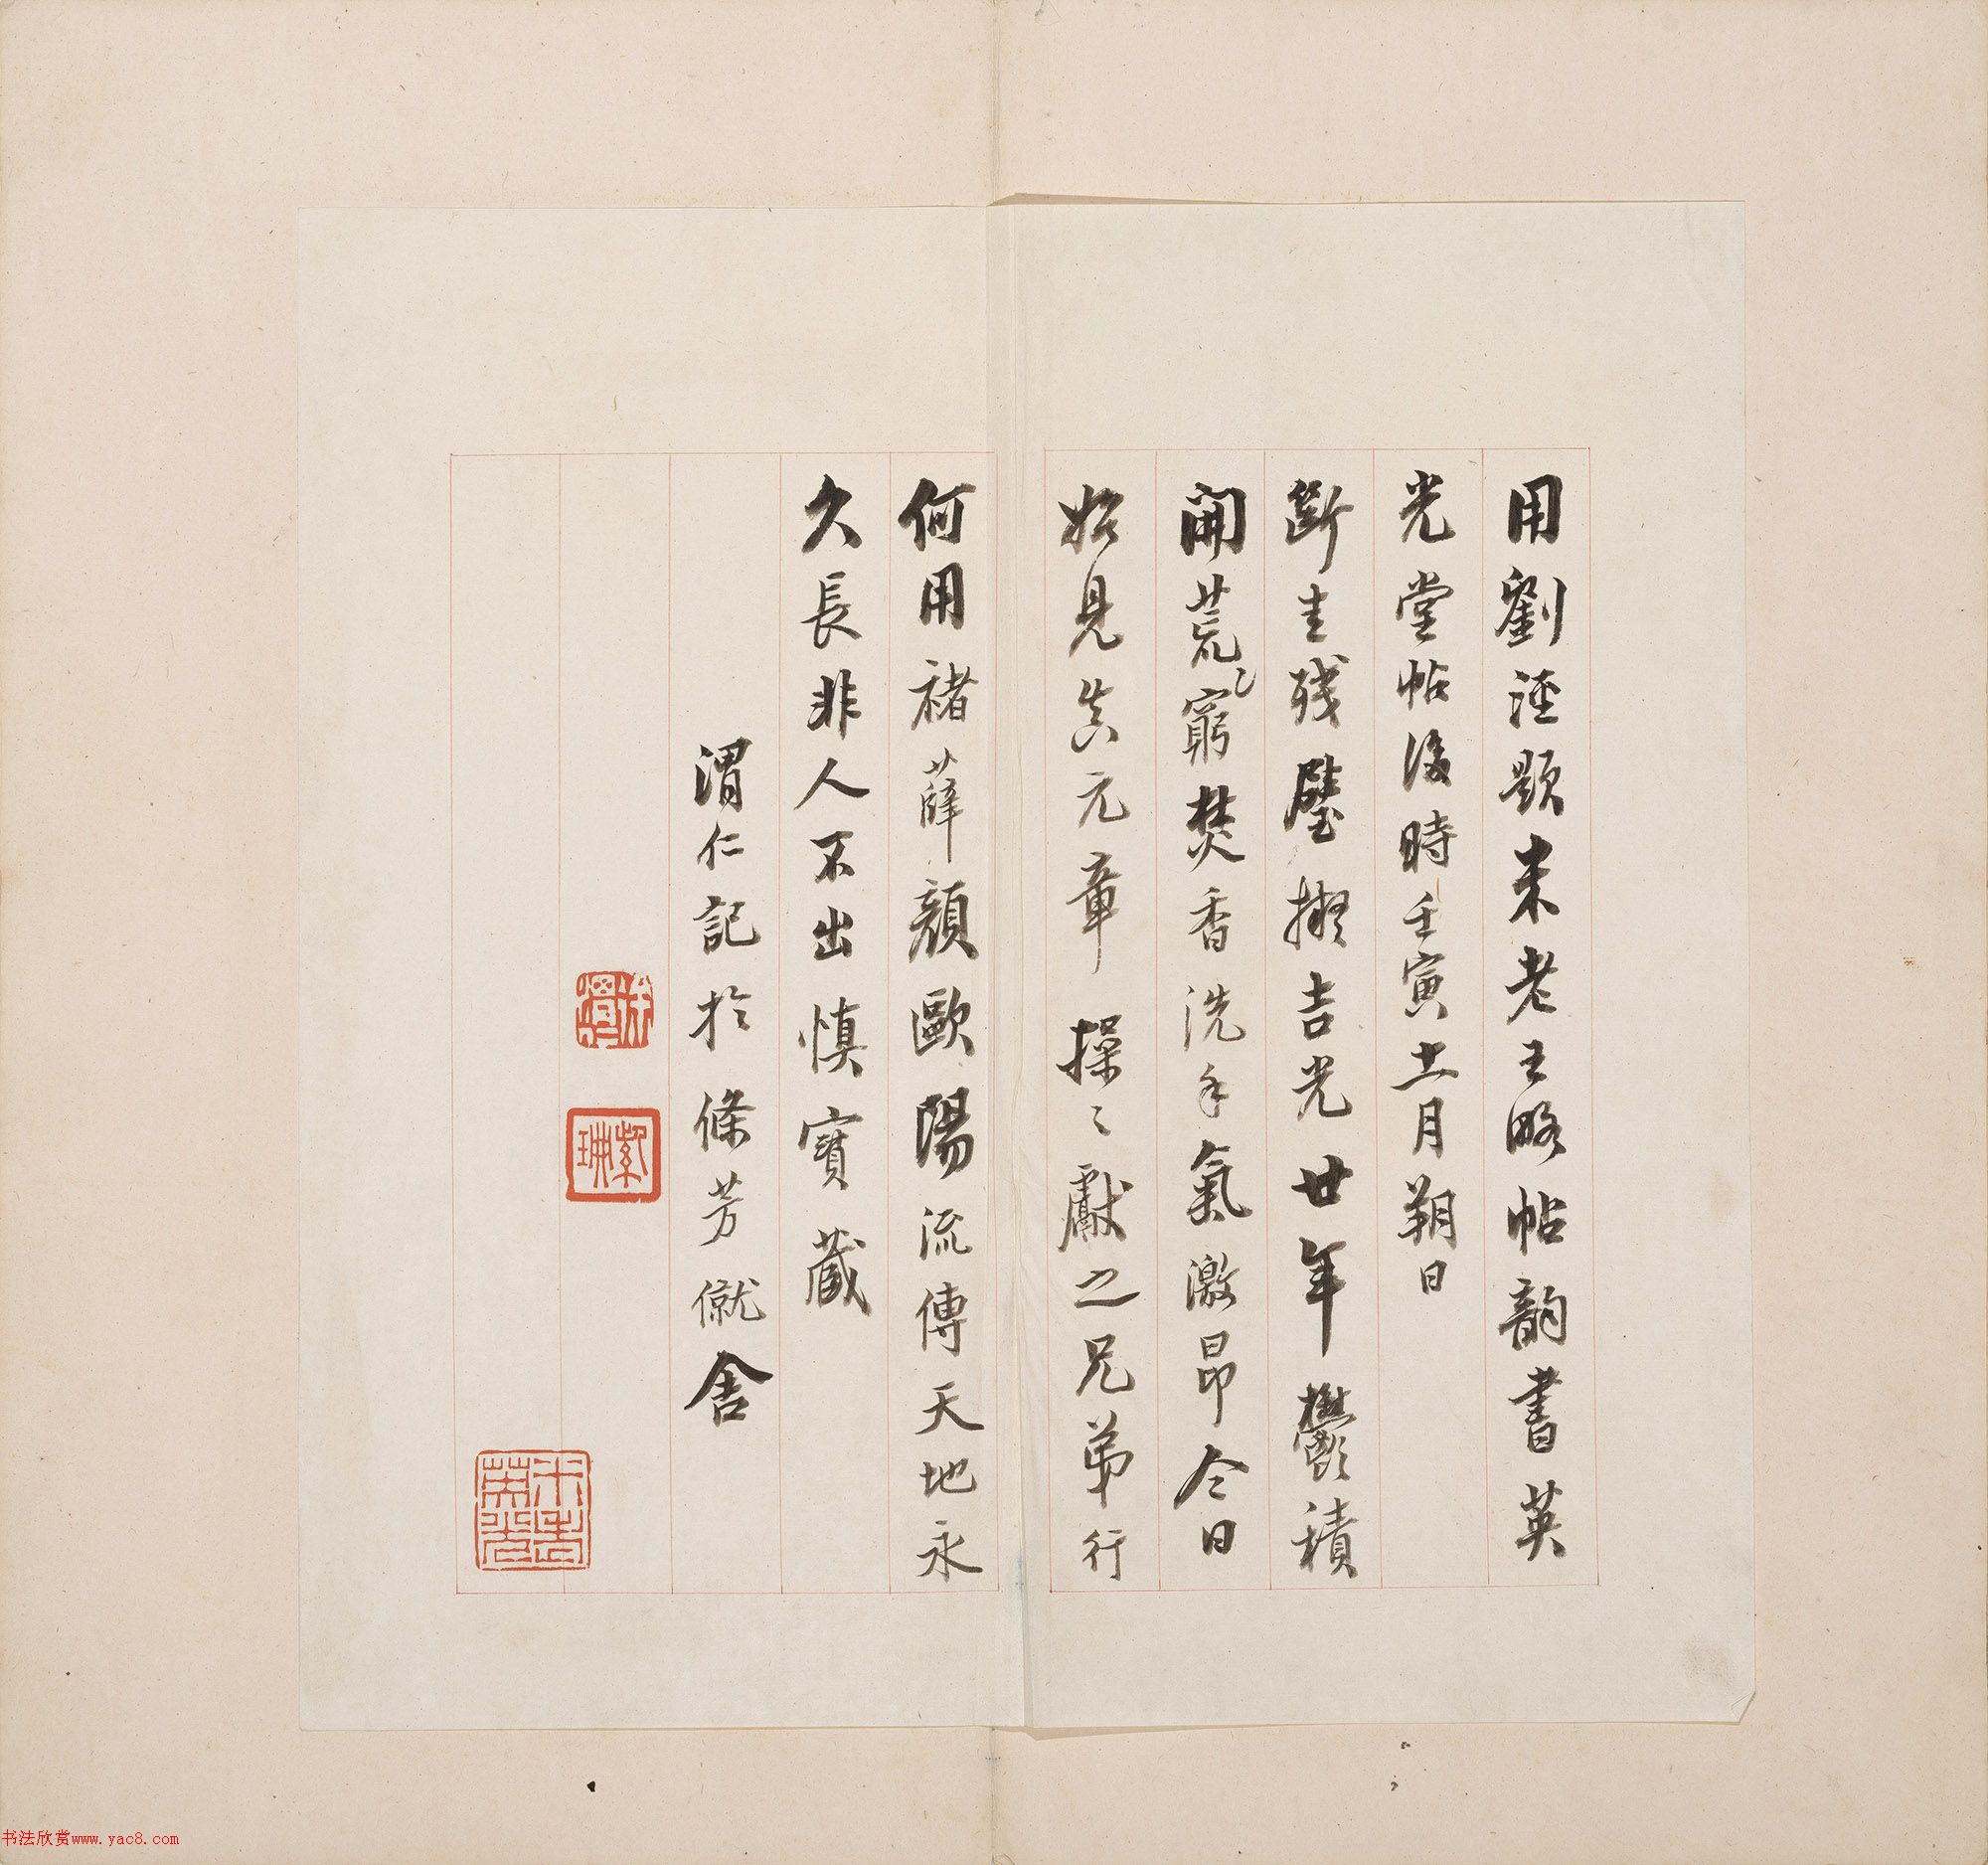 用劉涇題米老王略帖韵書英
光堂帖後時壬寅十一月朔日
斷圭殘璧擬吉光廿年鬱積
開荒窮焚香洗手氣激昂今日
始見真元章操〻獻之兄弟行
何用褚薛顏歐陽流傳天地永
久長非人不出慎寶藏
渭仁記於條芳僦舍
紫珊
书法欣赏www.yac8.com